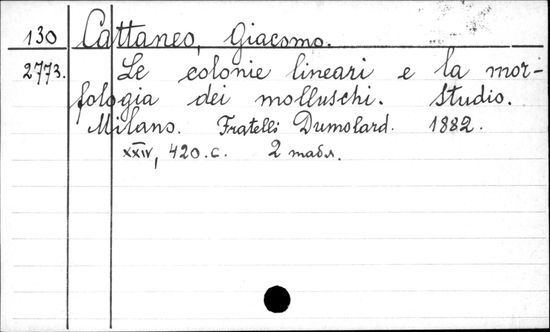 130 Cattaneo, Giacomo.
2773. Le colonie lineari e la mor-
fologia dei molluschi. Studio.
Milano. Fratelli Dumolard. 1882.
XXIV, 420.c. 2 табл.